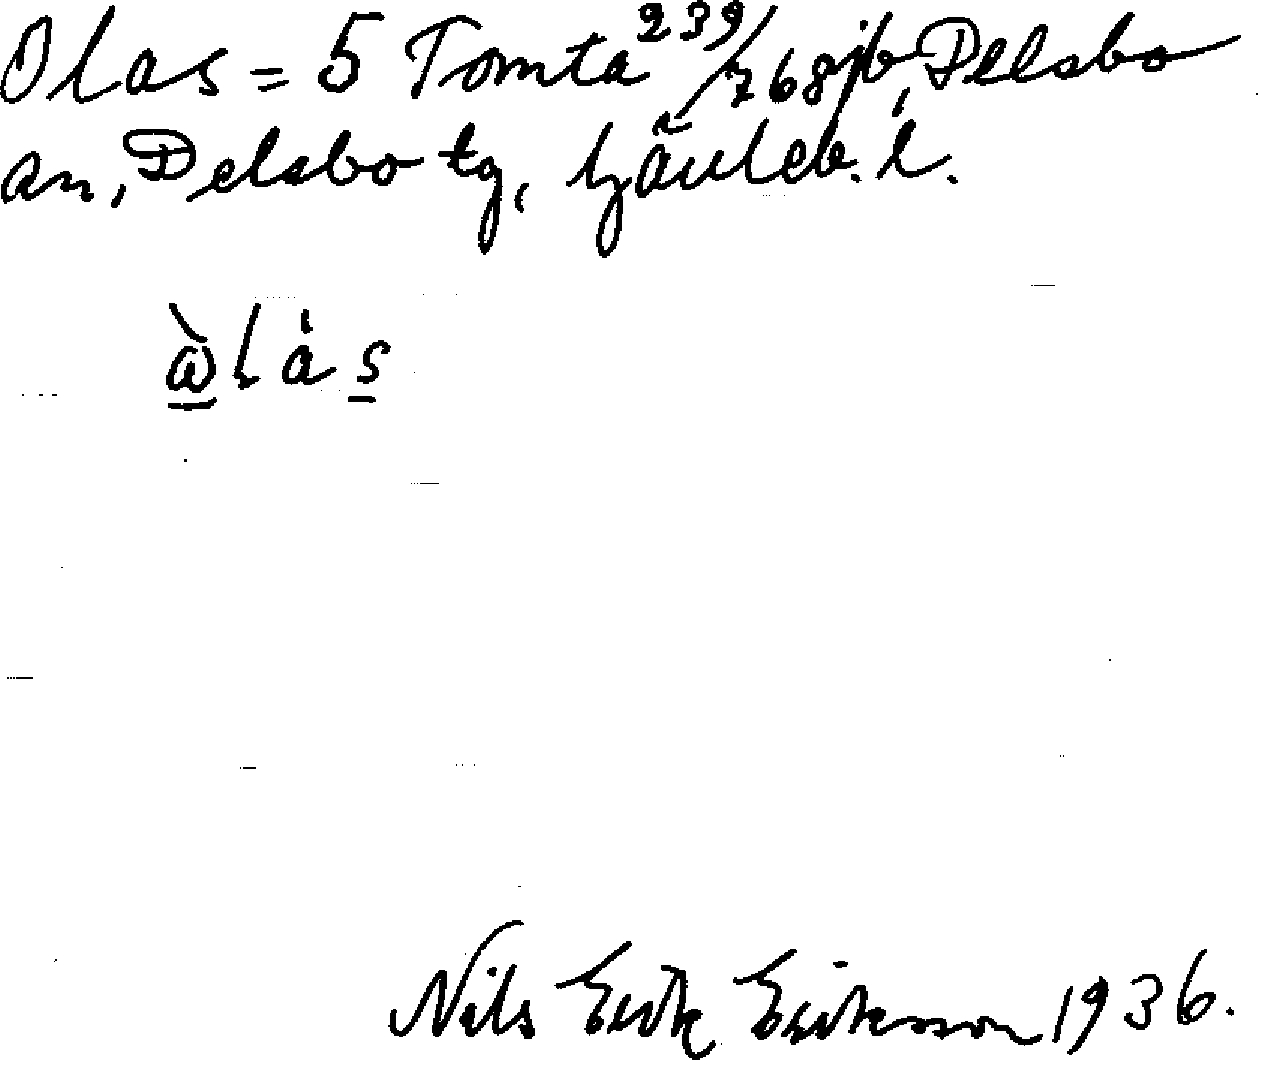 Olas = 5 Tomta 239/768 jb, Delsbo
sn, Delsbo tg, Gävleb. l.
ὼ̱lás̱
Nils Erik Eriksson 1936.